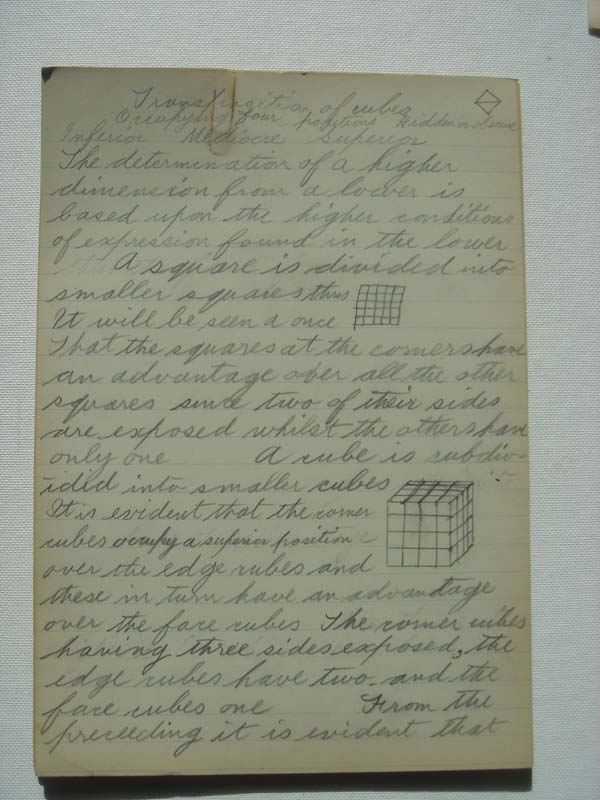 Transposition of cubes
Occupying four positions Hidden or obscure
Inferior Mediocre Superior
The determination of a higher
dimension from a lower is
based upon the higher conditions
of expression found in the lower
A square is divided into
smaller squares thus
It will be seen a once
That the squares at the corners have
an advantage over all the other
squares since two of their sides
are exposed whilst the others have
only one A cube is subdiv-
idid into smaller cubes
It is evident that the corner
cubes occupy a superior position
over the edge cubes and
these in turn have an advantage
over the face cubes The corner cubes
having three sides exposed, the
edge cubes have two and the
face cubes one From the
preceeding it is evident that